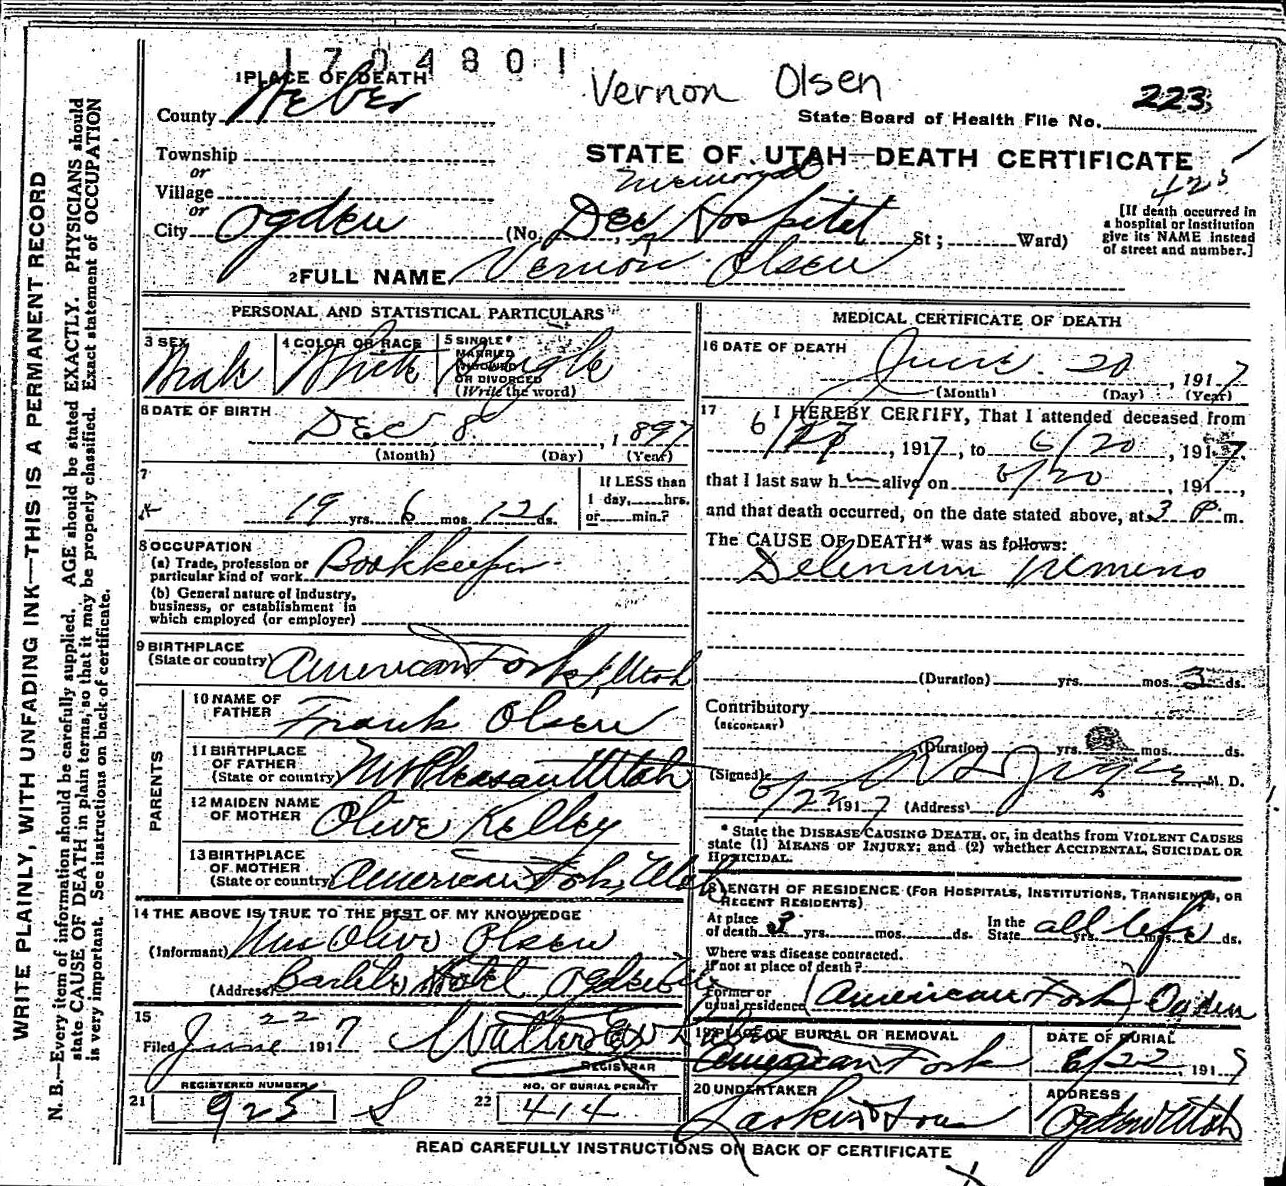 1704801
Vernon Olsen
223
State Board of Health File No.
1 PLACE OF DEATH
County Weber
Township
or
Village
or
City Ogden
STATE OF UTAH—DEATH CERTIFICATE
425
memorial
(No. Dee Hospital St; Ward)
[If death occurred in
a hospital or institution
give its NAME instead
of street and number.]
2 FULL NAME Vernon Olsen
WRITE PLAINLY, WITH UNFADING INK—THIS IS A PERMANENT RECORD
N. B.—Every item of information should be carefully supplied. AGE should be stated EXACTLY. PHYSICIANS should
state CAUSE OF DEATH in plain terms, so that it may be properly classified. Exact statement of OCCUPATION
is very important. See instructions on back of certificate.
PERSONAL AND STATISTICAL PARTICULARS
3 SEX
Male
4 COLOR OR RACE
White
5 SINGLE
MARRIED
WIDOWED
OR DIVORCED
(Write the word)
Single
6 DATE OF BIRTH
Dec 8, 1897
(Month) (Day) (Year)
7
19 yrs. 6 mos. 12 ds.
If LESS than
1 day, hrs.
or min.?
8 OCCUPATION
(a) Trade, profession or
particular kind of work Bookkeeper
(b) General nature of Industry,
business, or establishment in
which employed (or employer)
9 BIRTHPLACE
(State or country) American Fork, Utah
PARENTS
10 NAME OF
FATHER Frank Olsen
11 BIRTHPLACE
OF FATHER
(State or country) Mt Pleasant Utah
12 MAIDEN NAME
OF MOTHER Olive Kelley
13 BIRTHPLACE
OF MOTHER
(State or country) American Fork, Utah
14 THE ABOVE IS TRUE TO THE BEST OF MY KNOWLEDGE
(Informant) Mrs Olive Olsen
(Address) Hotel Ogden
15
Filed June 22 1917 Walter
REGISTRAR
21 REGISTERED NUMBER
925 S
22 NO. OF BURIAL PERMIT
414
MEDICAL CERTIFICATE OF DEATH
16 DATE OF DEATH
June 20, 1917
(Month) (Day) (Year)
17 I HEREBY CERTIFY, That I attended deceased from
6/ , 1917, to 6/20, 1917,
that I last saw h alive on 6/20, 191 ,
and that death occurred, on the date stated above, at 3 P m.
The CAUSE OF DEATH* was as follows:
Delerium
(Duration) yrs. mos. 3 ds.
Contributory
(SECONDARY)
(Duration) yrs. mos. ds.
(Signed) M. D.
6/22 1917 (Address)
* State the DISEASE CAUSING DEATH, or, in deaths from VIOLENT CAUSES
state (1) MEANS OF INJURY; and (2) whether ACCIDENTAL, SUICIDAL OR
HOMICIDAL.
18 LENGTH OF RESIDENCE (FOR HOSPITALS, INSTITUTIONS, TRANSIENTS, OR
RECENT RESIDENTS)
At place
of death 3 yrs. mos. ds.
In the
State all life yrs. mos. ds.
Where was disease contracted,
if not at place of death?
Former or
usual residence (American Fork) Ogden
19 PLACE OF BURIAL OR REMOVAL
American Fork
DATE OF BURIAL
6/22, 191
20 UNDERTAKER
Larkin & Sons
ADDRESS
Ogden Utah
READ CAREFULLY INSTRUCTIONS ON BACK OF CERTIFICATE